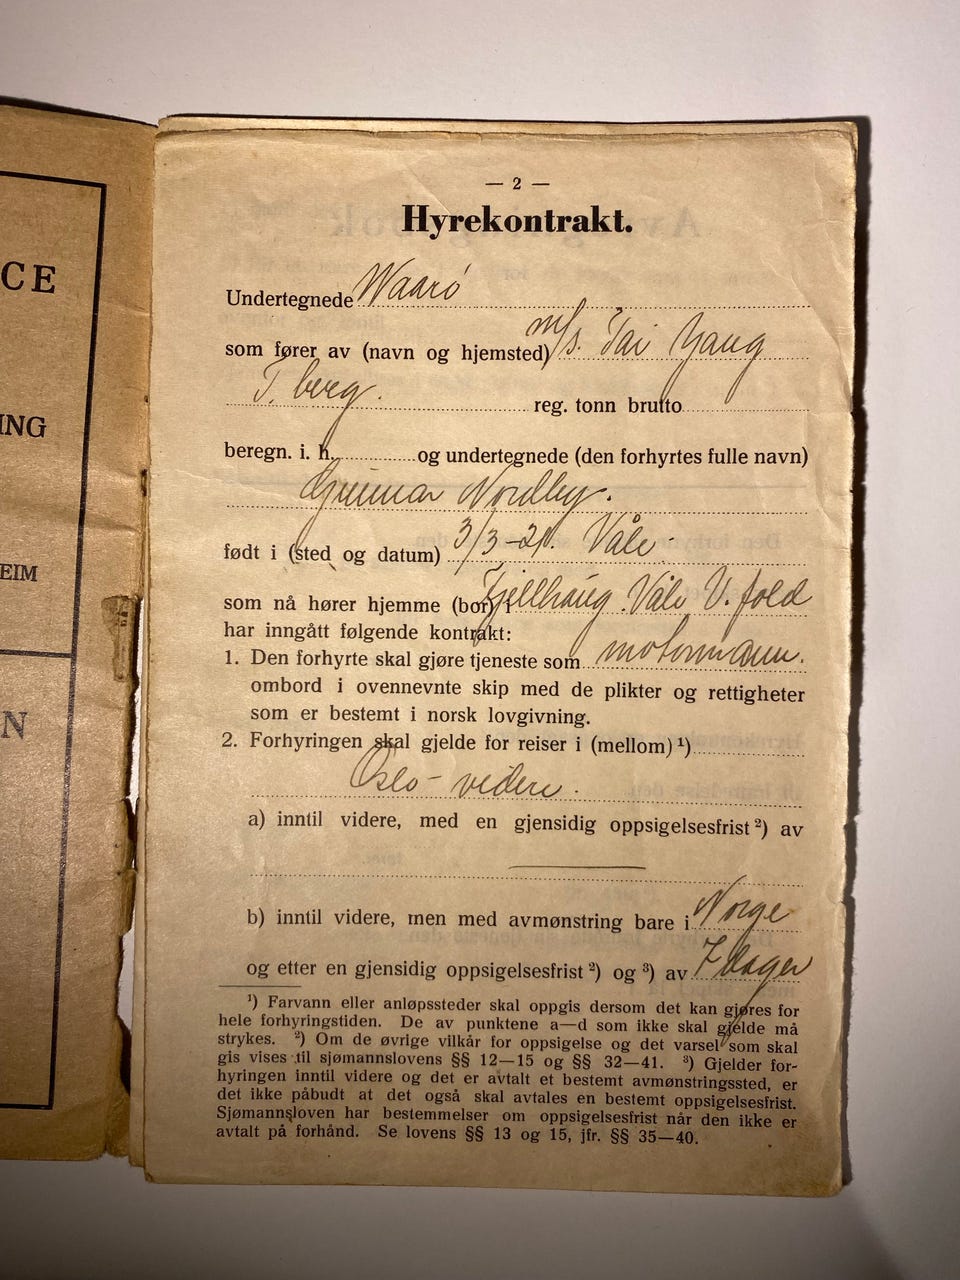 CE
ING
EIM
N
— 2 —
Hyrekontrakt.
Undertegnede Waarö
som fører av (navn og hjemsted) m/s. Tai Yang
T. berg. reg. tonn brutto
beregn. i. h. og undertegnede (den forhyrtes fulle navn)
Gunnar Nordby.
født i (sted og datum) 3/3-21. Våle
som nå hører hjemme (bor) i Fjellhaug. Våle V. fold
har inngått følgende kontrakt:
1. Den forhyrte skal gjøre tjeneste som motormann.
ombord i ovennevnte skip med de plikter og rettigheter
som er bestemt i norsk lovgivning.
2. Forhyringen skal gjelde for reiser i (mellom) ¹)
Oslo - videre.
a) inntil videre, med en gjensidig oppsigelsesfrist ²) av
b) inntil videre, men med avmønstring bare i Norge
og etter en gjensidig oppsigelsesfrist ²) og ³) av 7 dager
¹) Farvann eller anløpssteder skal oppgis dersom det kan gjøres for
hele forhyringstiden. De av punktene a—d som ikke skal gjelde må
strykes. ²) Om de øvrige vilkår for oppsigelse og det varsel som skal
gis vises til sjømannslovens §§ 12—15 og §§ 32—41. ³) Gjelder for-
hyringen inntil videre og det er avtalt et bestemt avmønstringssted, er
det ikke påbudt at det også skal avtales en bestemt oppsigelsesfrist.
Sjømannsloven har bestemmelser om oppsigelsesfrist når den ikke er
avtalt på forhånd. Se lovens §§ 13 og 15, jfr. §§ 35—40.